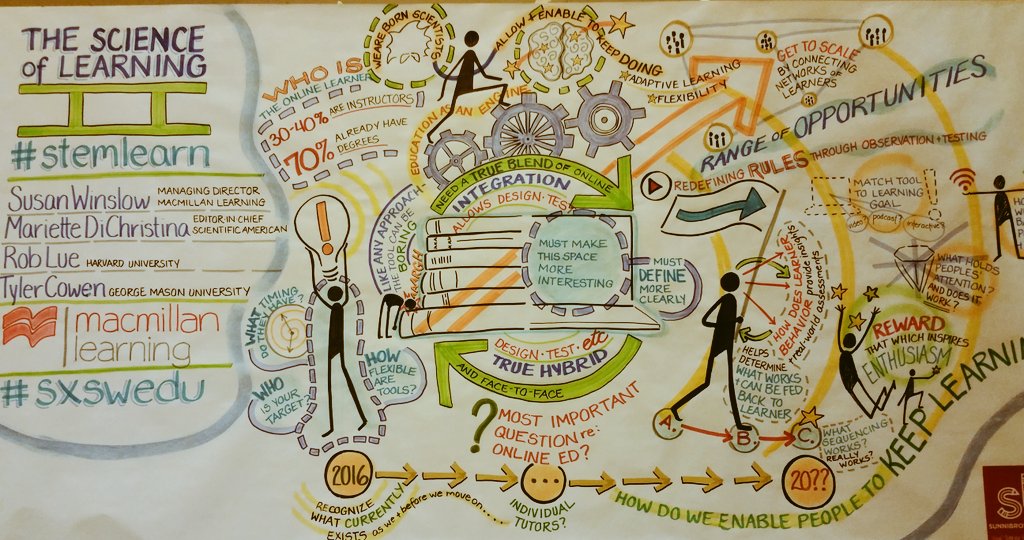 THE SCIENCE
of LEARNING
#stemlearn
Susan Winslow MANAGING DIRECTOR
MACMILLAN LEARNING
Mariette DiChristina EDITOR IN CHIEF
SCIENTIFIC AMERICAN
Rob Lue HARVARD UNIVERSITY
Tyler Cowen GEORGE MASON UNIVERSITY
macmillan
learning
#sxswedu
WHO IS
THE ONLINE LEARNER
30-40% ARE INSTRUCTORS
70% ALREADY HAVE
DEGREES
WE ARE BORN SCIENTISTS
ALLOW + ENABLE TO KEEP DOING
EDUCATION AS AN ENGINE
ADAPTIVE LEARNING
FLEXIBILITY
GET TO SCALE
BY CONNECTING
NETWORKS OF
LEARNERS
RANGE OF OPPORTUNITIES
REDEFINING RULES THROUGH OBSERVATION + TESTING
NEED A TRUE BLEND OF ONLINE
INTEGRATION
ALLOWS DESIGN-TEST
LIKE ANY APPROACH
THE TOOL CAN BE
BORING
RESEARCH
MUST MAKE
THIS SPACE
MORE
INTERESTING
MUST
DEFINE
MORE
CLEARLY
DESIGN · TEST · etc
TRUE HYBRID
AND FACE-TO-FACE
WHAT TIMING
DO THEY HAVE?
WHO
IS YOUR
TARGET?
HOW
FLEXIBLE
ARE
TOOLS?
? MOST IMPORTANT
QUESTION re:
ONLINE ED?
HOW DOES LEARNER
BEHAVIOR provide insight
real-world assessments
HELPS
DETERMINE
WHAT WORKS
+ CAN BE FED
BACK TO
LEARNER
A. B. C.
WHAT
SEQUENCING
WORKS?
REALLY
WORKS?
MATCH TOOL
TO LEARNING
GOAL
video? podcast? interactive?
WHAT HOLDS
PEOPLES
ATTENTION?
AND DOES IT
WORK?
REWARD
THAT WHICH INSPIRES
ENTHUSIASM
2016
RECOGNIZE
WHAT CURRENTLY
EXISTS as we + before we move on.....
...
INDIVIDUAL
TUTORS?
20??
HOW DO WE ENABLE PEOPLE TO KEEP LEARNIN
SUNNIBRO